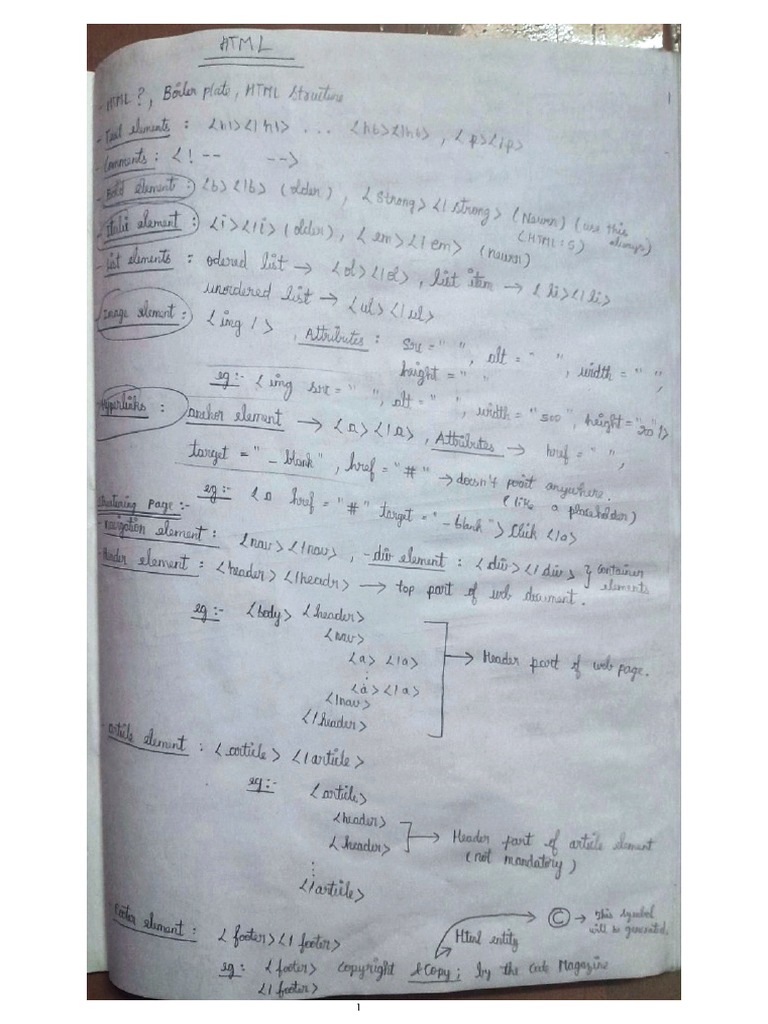 HTML
1
- HTML?, Boiler plate, HTML Structure
- Text elements : <h1></h1> ... <h6></h6>, <p></p>
- Comments : <!-- -->
- Bold element : <b></b> (older), <strong></strong> (Newrn) (use this always)
- Italic element : <i></i> (older), <em></em> (newrn) (HTML:5)
- List elements : odered list → <ol></ol>, list item → <li></li>
unordered list → <ul></ul>
Image element : <img />, Attributes : src = " ", alt = " ", width = " ",
height = " "
eg:- <img src = " ", alt = " ", width = "500", height = "20" />
- Hyperlinks : anchor element → <a></a>, Attributes → href = " ",
target = "_blank", href = "#" → doesn't point anywhere.
(like a placeholder)
eg:- <a href = "#" target = "_blank"> Click </a>
Structuring page :-
- Navigation element : <nav></nav>, - div element : <div></div> } container elements
- Header element : <header></headr> → top part of web document.
eg:- <body> <header>
<nav>
<a> </a>
:
<a> </a>
</nav>
</header>
→ Header part of web page.
- Article element : <article> </article>
eg:- <article>
<header>
<header>
→ Header part of article element
(not mandatory)
</article>
- Footer element : <footer></footer>
Html entity
© → This symbol
will be generated.
eg: <footer> Copyright &Copy; by the Code Magazine
</footer>
1